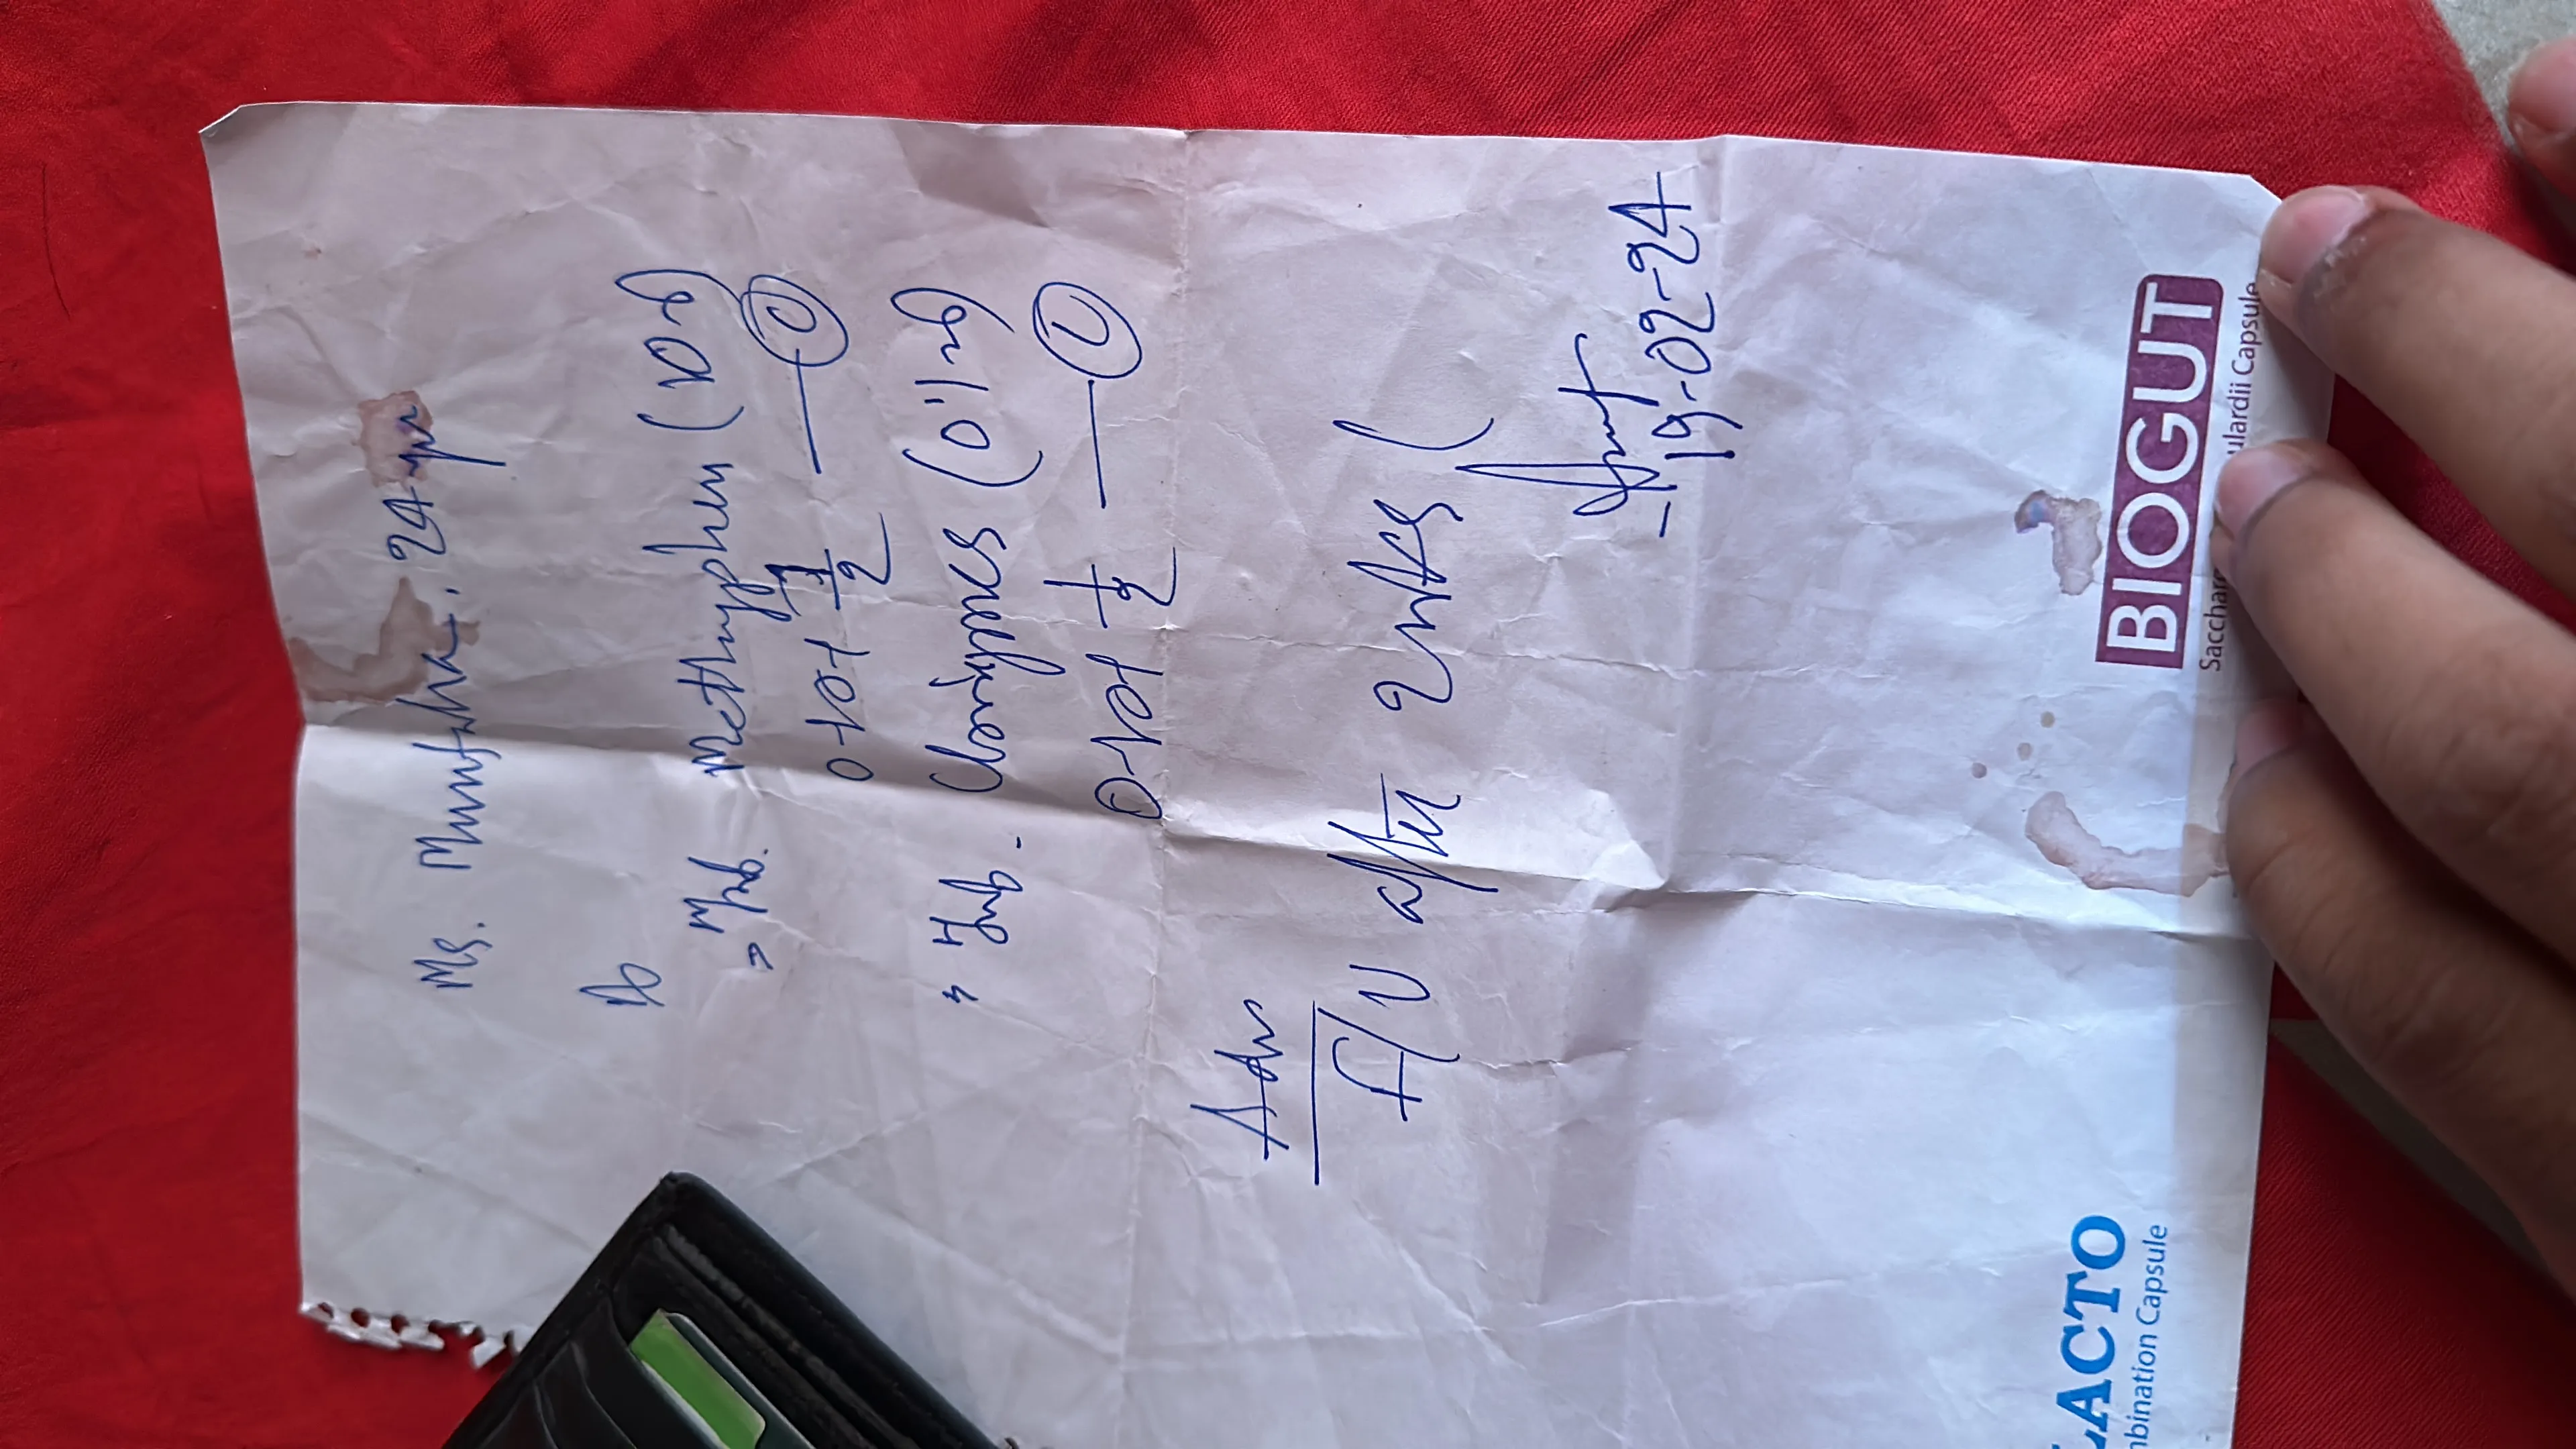 Ms. Muntaha. 24 yr
Rx
Tab. Methyphen (10mg)
0+0+½ — ①
Tab. Clonases (0.1mg)
0+0+½ — ①
Adv
F/U after 2 wks
19-02-24
BIOGUT
ulardii Capsule
LACTO
mbination Capsule